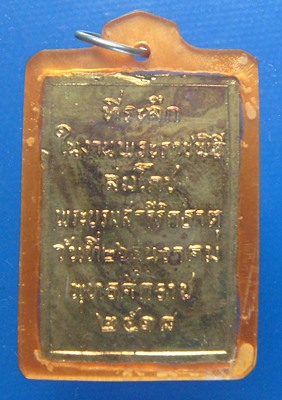 ที่ระลึก
ในงานพระราชพิธี
สมโภช
พระบรมสารีริกธาตุ
วันที่๒๖ธันวาคม
พุทธศักราช
๒๕๑๘